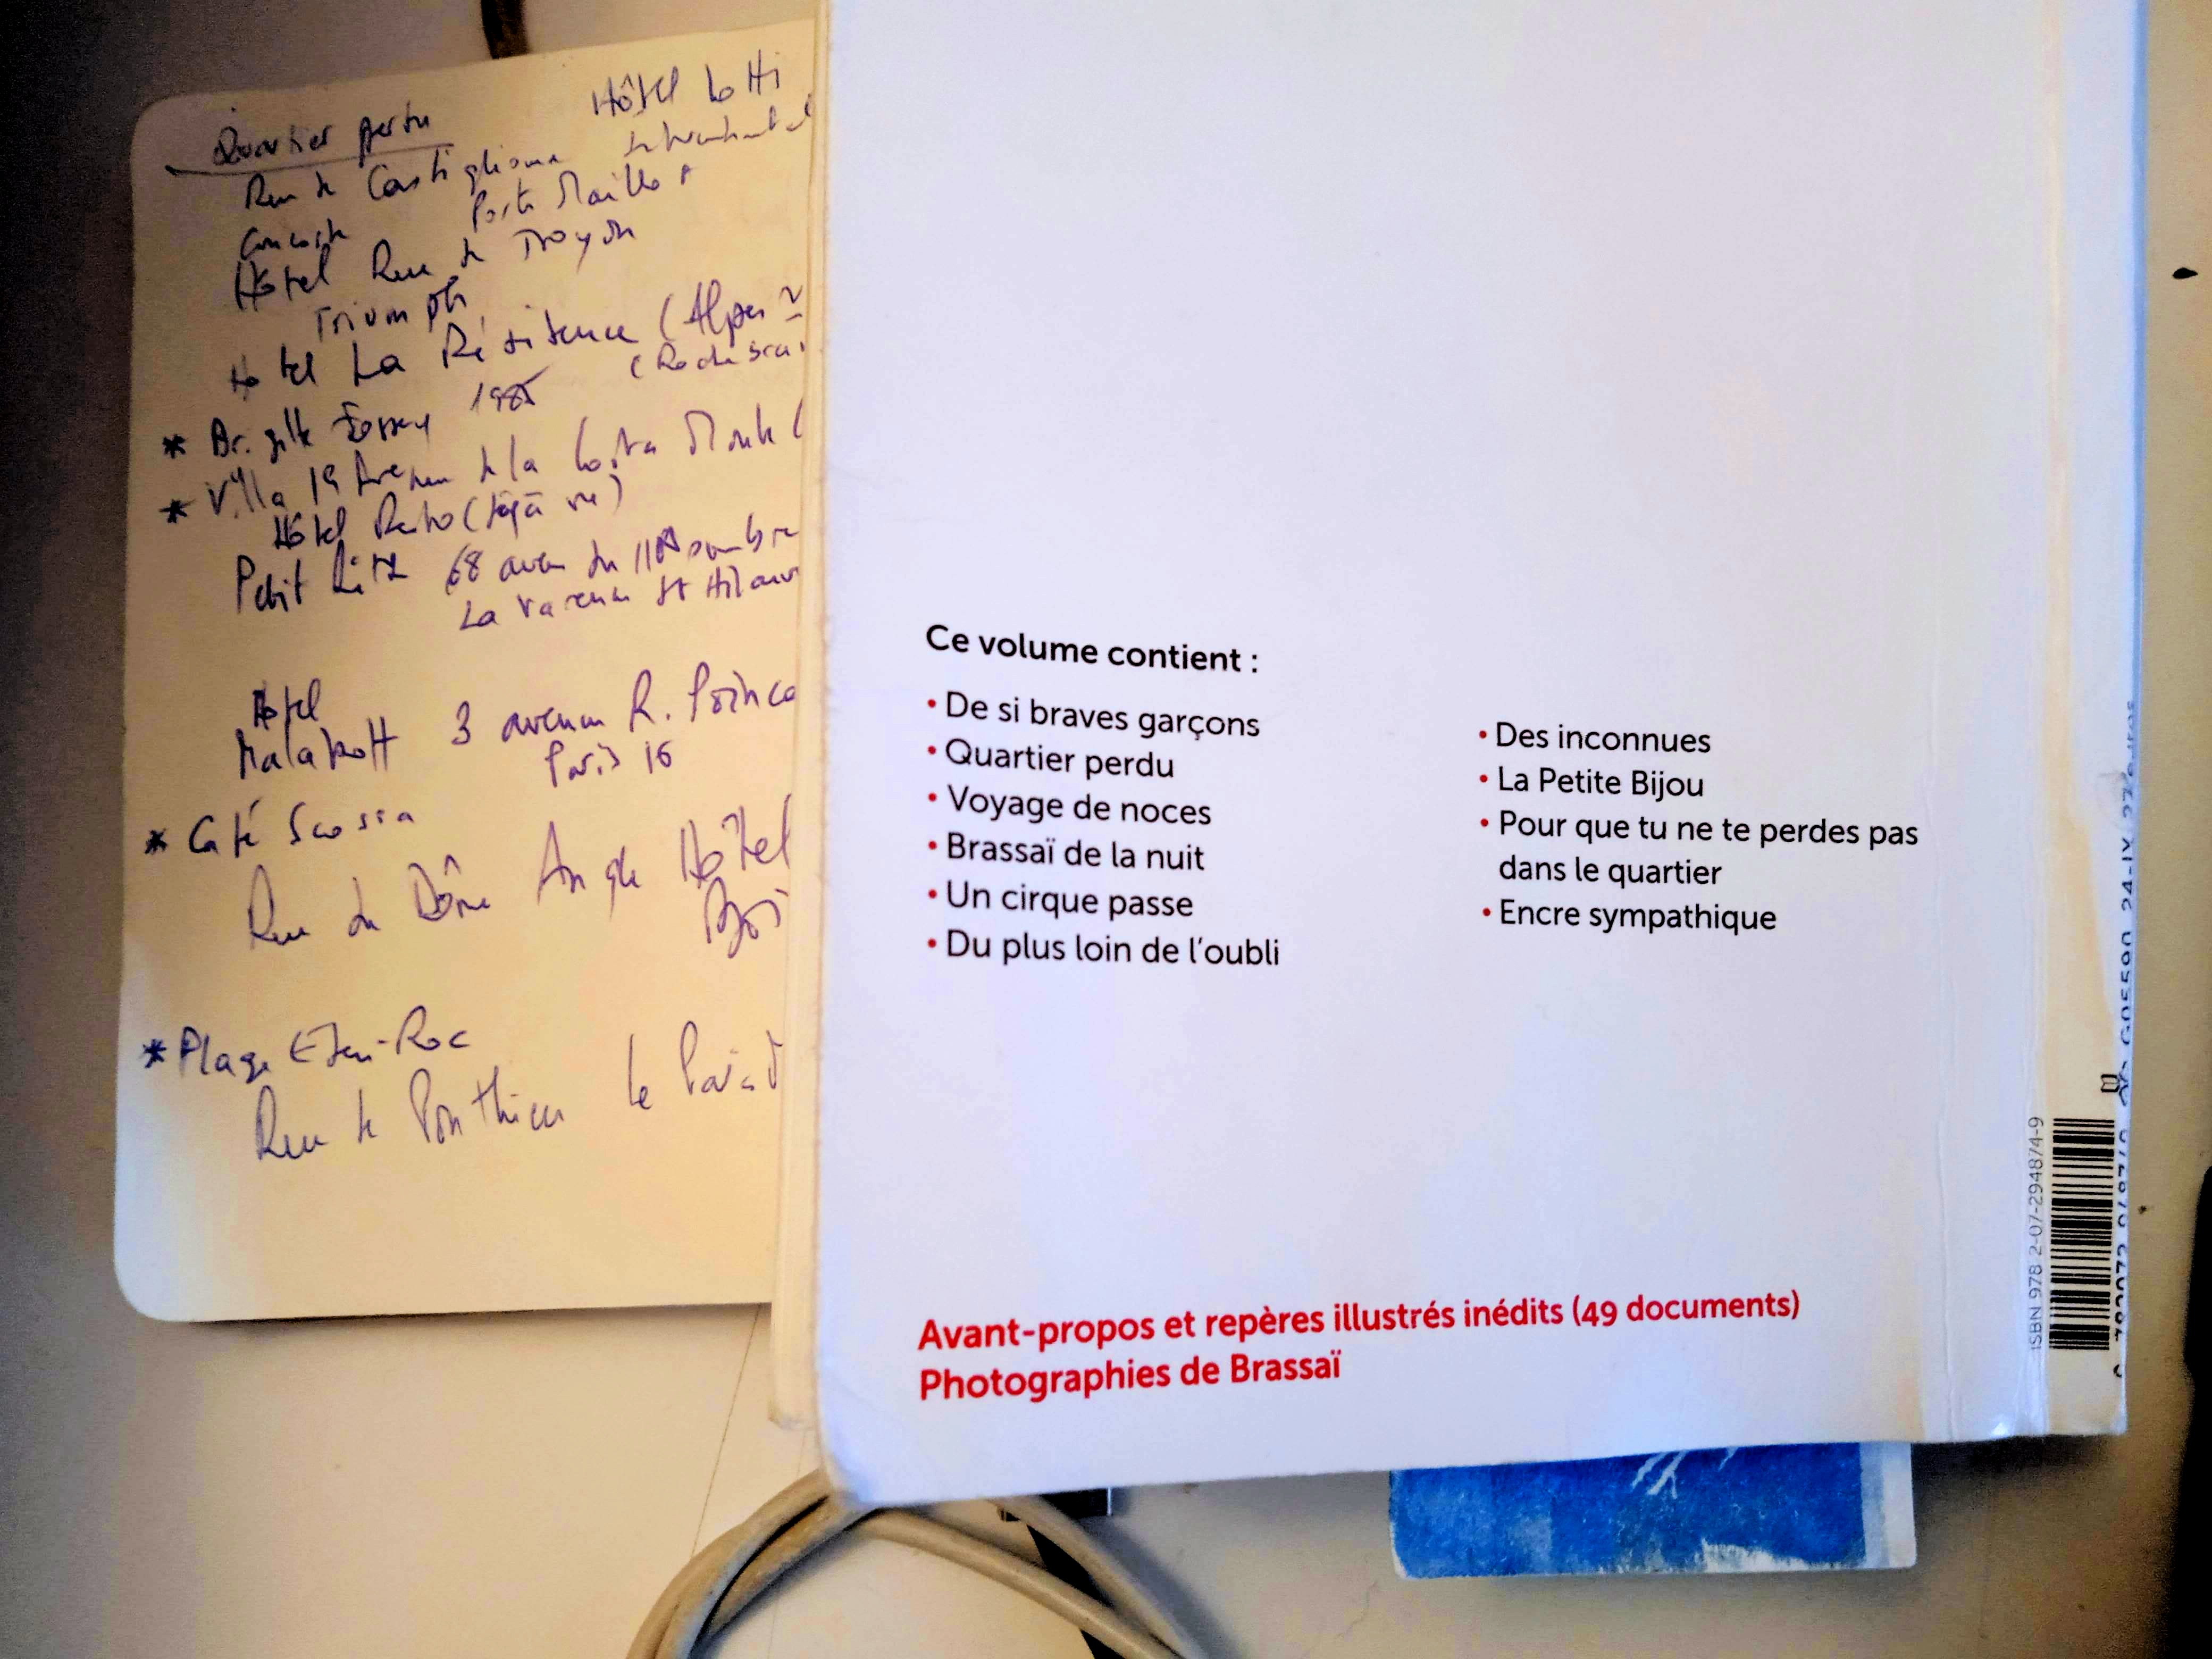 Quartier perdu
Hôtel Lotti
Rue de Castiglione
Concorde Porte Maillot
Hôtel Rue de Troyon
Triumph
Hotel La Résistence (Alpes
* Brigitte Fossey 1985
* Villa 19 Avenue de la Costa Monte
Hôtel (déjà vu)
Petit Ritz 68 aven du 11 Novembre
La Varenne St Hilaire
Hotel
Malakoff 3 avenue R. Poinca
Paris 16
* Café Scossa
Rue du Dôme Angle Hôtel
* Plage Eden-Roc
Rue de Ponthieu le
Ce volume contient :
• De si braves garçons
• Quartier perdu
• Voyage de noces
• Brassaï de la nuit
• Un cirque passe
• Du plus loin de l'oubli
• Des inconnues
• La Petite Bijou
• Pour que tu ne te perdes pas
dans le quartier
• Encre sympathique
Avant-propos et repères illustrés inédits (49 documents)
Photographies de Brassaï
ISBN 978 2-07-294874-9